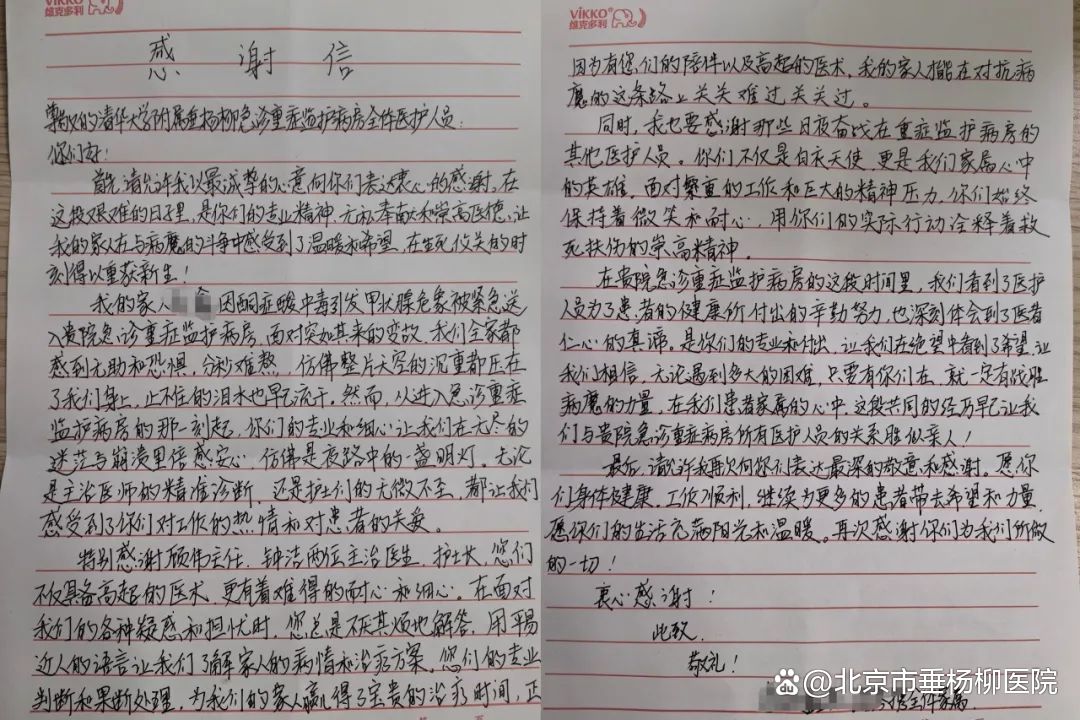 VIKKO
维克多利
感谢信
尊敬的清华大学附属垂杨柳急诊重症监护病房全体医护人员:
你们好!
首先请允许我以最诚挚的心意向你们表达衷心的感谢,在
这段艰难的日子里,是你们的专业精神、无私奉献和崇高医德,让
我的家人在与病魔的斗争中感受到了温暖和希望,在生死攸关的时
刻得以重获新生!
我的家人 因酮症酸中毒引发甲状腺危象被紧急送
入贵院急诊重症监护病房,面对突如其来的变故,我们全家都
感到无助和恐惧,分秒难熬,仿佛整片天空的沉重都压在
了我们身上,止不住的泪水也早已流干。然而,从进入急诊重症
监护病房的那一刻起,你们的专业和细心让我们在无尽的
迷茫与崩溃里倍感安心,仿佛是夜路中的一盏明灯。无论
是主治医师的精准诊断,还是护士们的无微不至,都让我们
感受到了你们对工作的热情和对患者的关爱。
特别感谢顾伟主任,钟洁两位主治医生,护士长,您们
不仅具备高超的医术,更有着难得的耐心和细心。在面对
我们的各种疑惑和担忧时,您总是不厌其烦地解答,用平易
近人的语言让我们了解家人的病情和治疗方案。您们的专业
判断和果断处理,为我们的家人赢得了宝贵的治疗时间,正
VIKKO
维克多利
因为有您们的陪伴以及高超的医术,我的家人才能在对抗病
魔的这条路上关关难过关关过。
同时,我也要感谢那些日夜奋战在重症监护病房的
其他医护人员。你们不仅是白衣天使,更是我们家属心中
的英雄。面对繁重的工作和巨大的精神压力,你们始终
保持着微笑和耐心,用你们的实际行动诠释着救
死扶伤的崇高精神。
在贵院急诊重症监护病房的这段时间里,我们看到了医护
人员为了患者的健康所付出的辛勤努力,也深刻体会到了医者
仁心的真谛。是你们的专业和付出,让我们在绝望中看到了希望,让
我们相信,无论遇到多大的困难,只要有你们在,就一定有战胜
病魔的力量,在我们患者家属的心中,这段共同的经历早已让我
们与贵院急诊重症病房所有医护人员的关系胜似亲人!
最后,请允许我再次向你们表达最深的敬意和感谢。愿你
们身体健康,工作顺利,继续为更多的患者带去希望和力量,
愿你们的生活充满阳光和温暖。再次感谢你们为我们所做
的一切!
衷心感谢!
此致
敬礼!
全体家属
@北京市垂杨柳医院